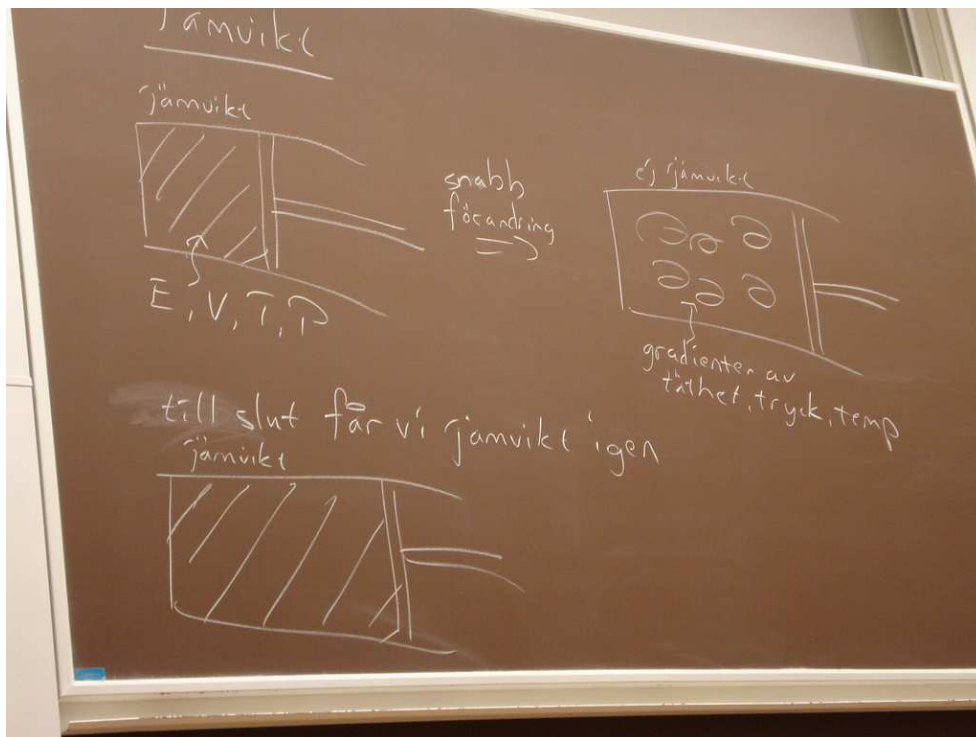 Jämvikt
jämvikt
E, V, T, P
snabb
förändring
ej jämvikt
gradienter av
täthet, tryck, temp
till slut får vi jämvikt igen
jämvikt